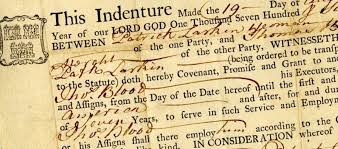 This Indenture Made the 19 Day of
Year of our LORD GOD One Thousand Seven Hundred
BETWEEN Patrick Larkin Thomas
Wright of the one Party, and
of the other Party, WITNESSETH
Patk Larkin (being ordered to be transp
to the Statute) doth hereby Covenant, Promise and Grant to and
Thos Blood his Executors,
and Assigns, from the Day of the Date hereof until the first
American and after, for and du
Seven Years, to serve in such Service and Employm
Thos Blood
or his Assigns shall there employ him according to the C
IN CONSIDERATION where